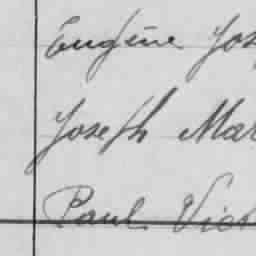 Eugène Jos
Joseph Mar
Paul Vict